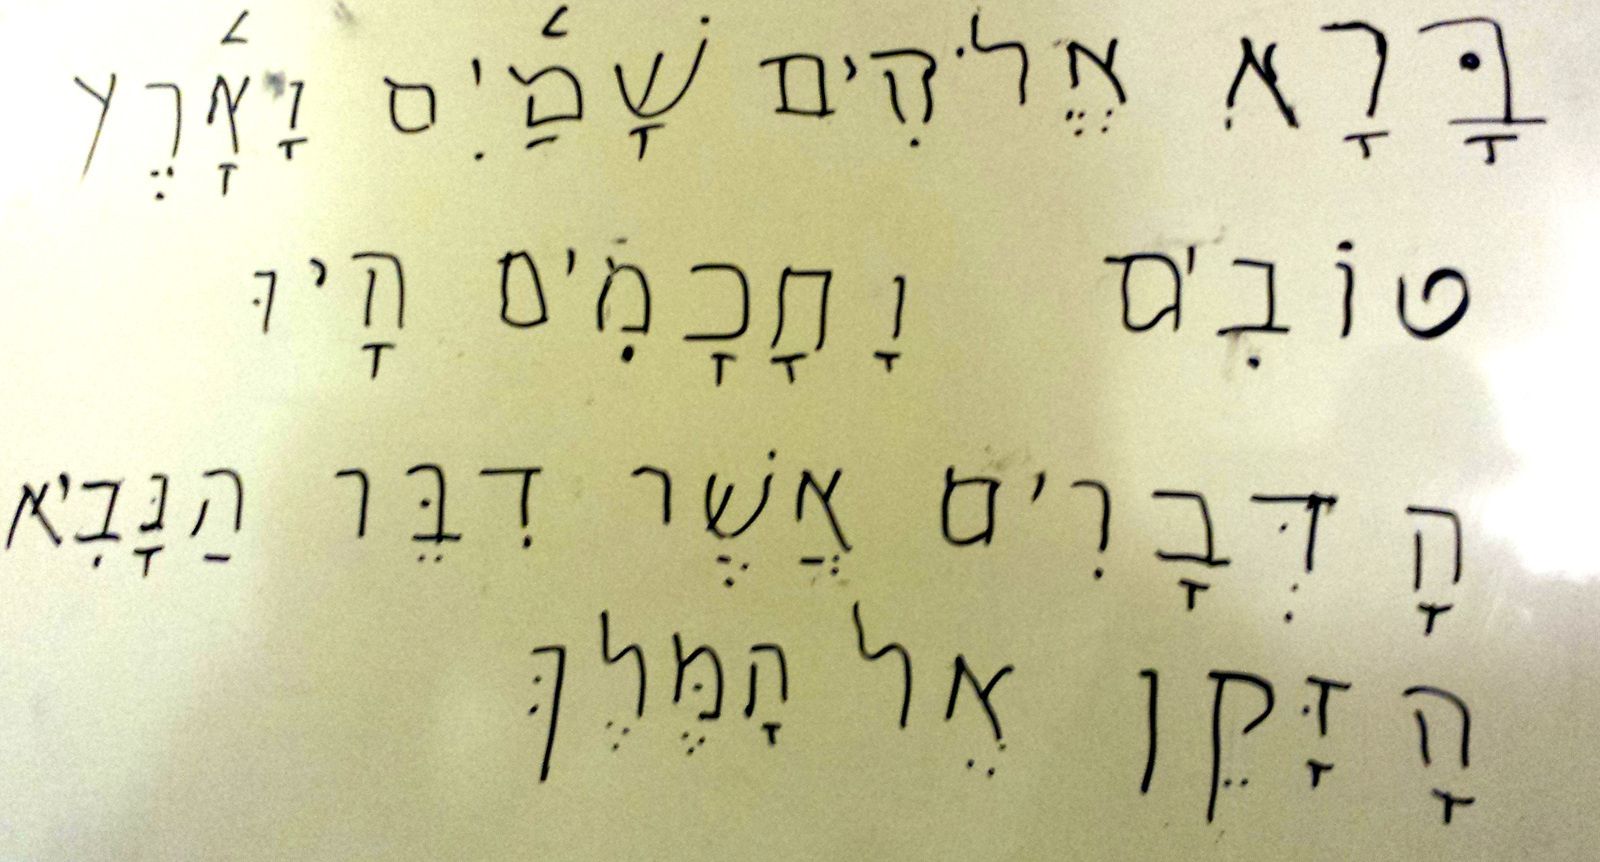 בָּרָא אֱלֹהִים שָׁמַ֫יִם וָאָ֫רֶץ
טוֹבִים וָחָכָמִים הָיוּ
הָדִּבָרִים אֲשֶׁר דִבֵּר הַנָּבִיא
הָזָּקֵן אֶל הָמֶּלֶךְ